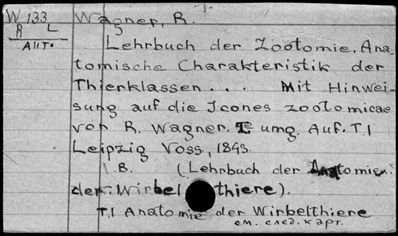 W 133 Wagner, R.
R L
Aut.
Lehrbuch der Zootomie. Ana-
tomische Charakteristik der
Thierklassen... Mit Hinwei-
sung auf die Icones zootomicae
von R. Wagner. umg. Auf. T.I
Leipzig Voss, 1843
I.B. (Lehrbuch der Anatomie
der Wirbelthiere).
T.I Anatomie der Wirbelthiere
см. след. карт.